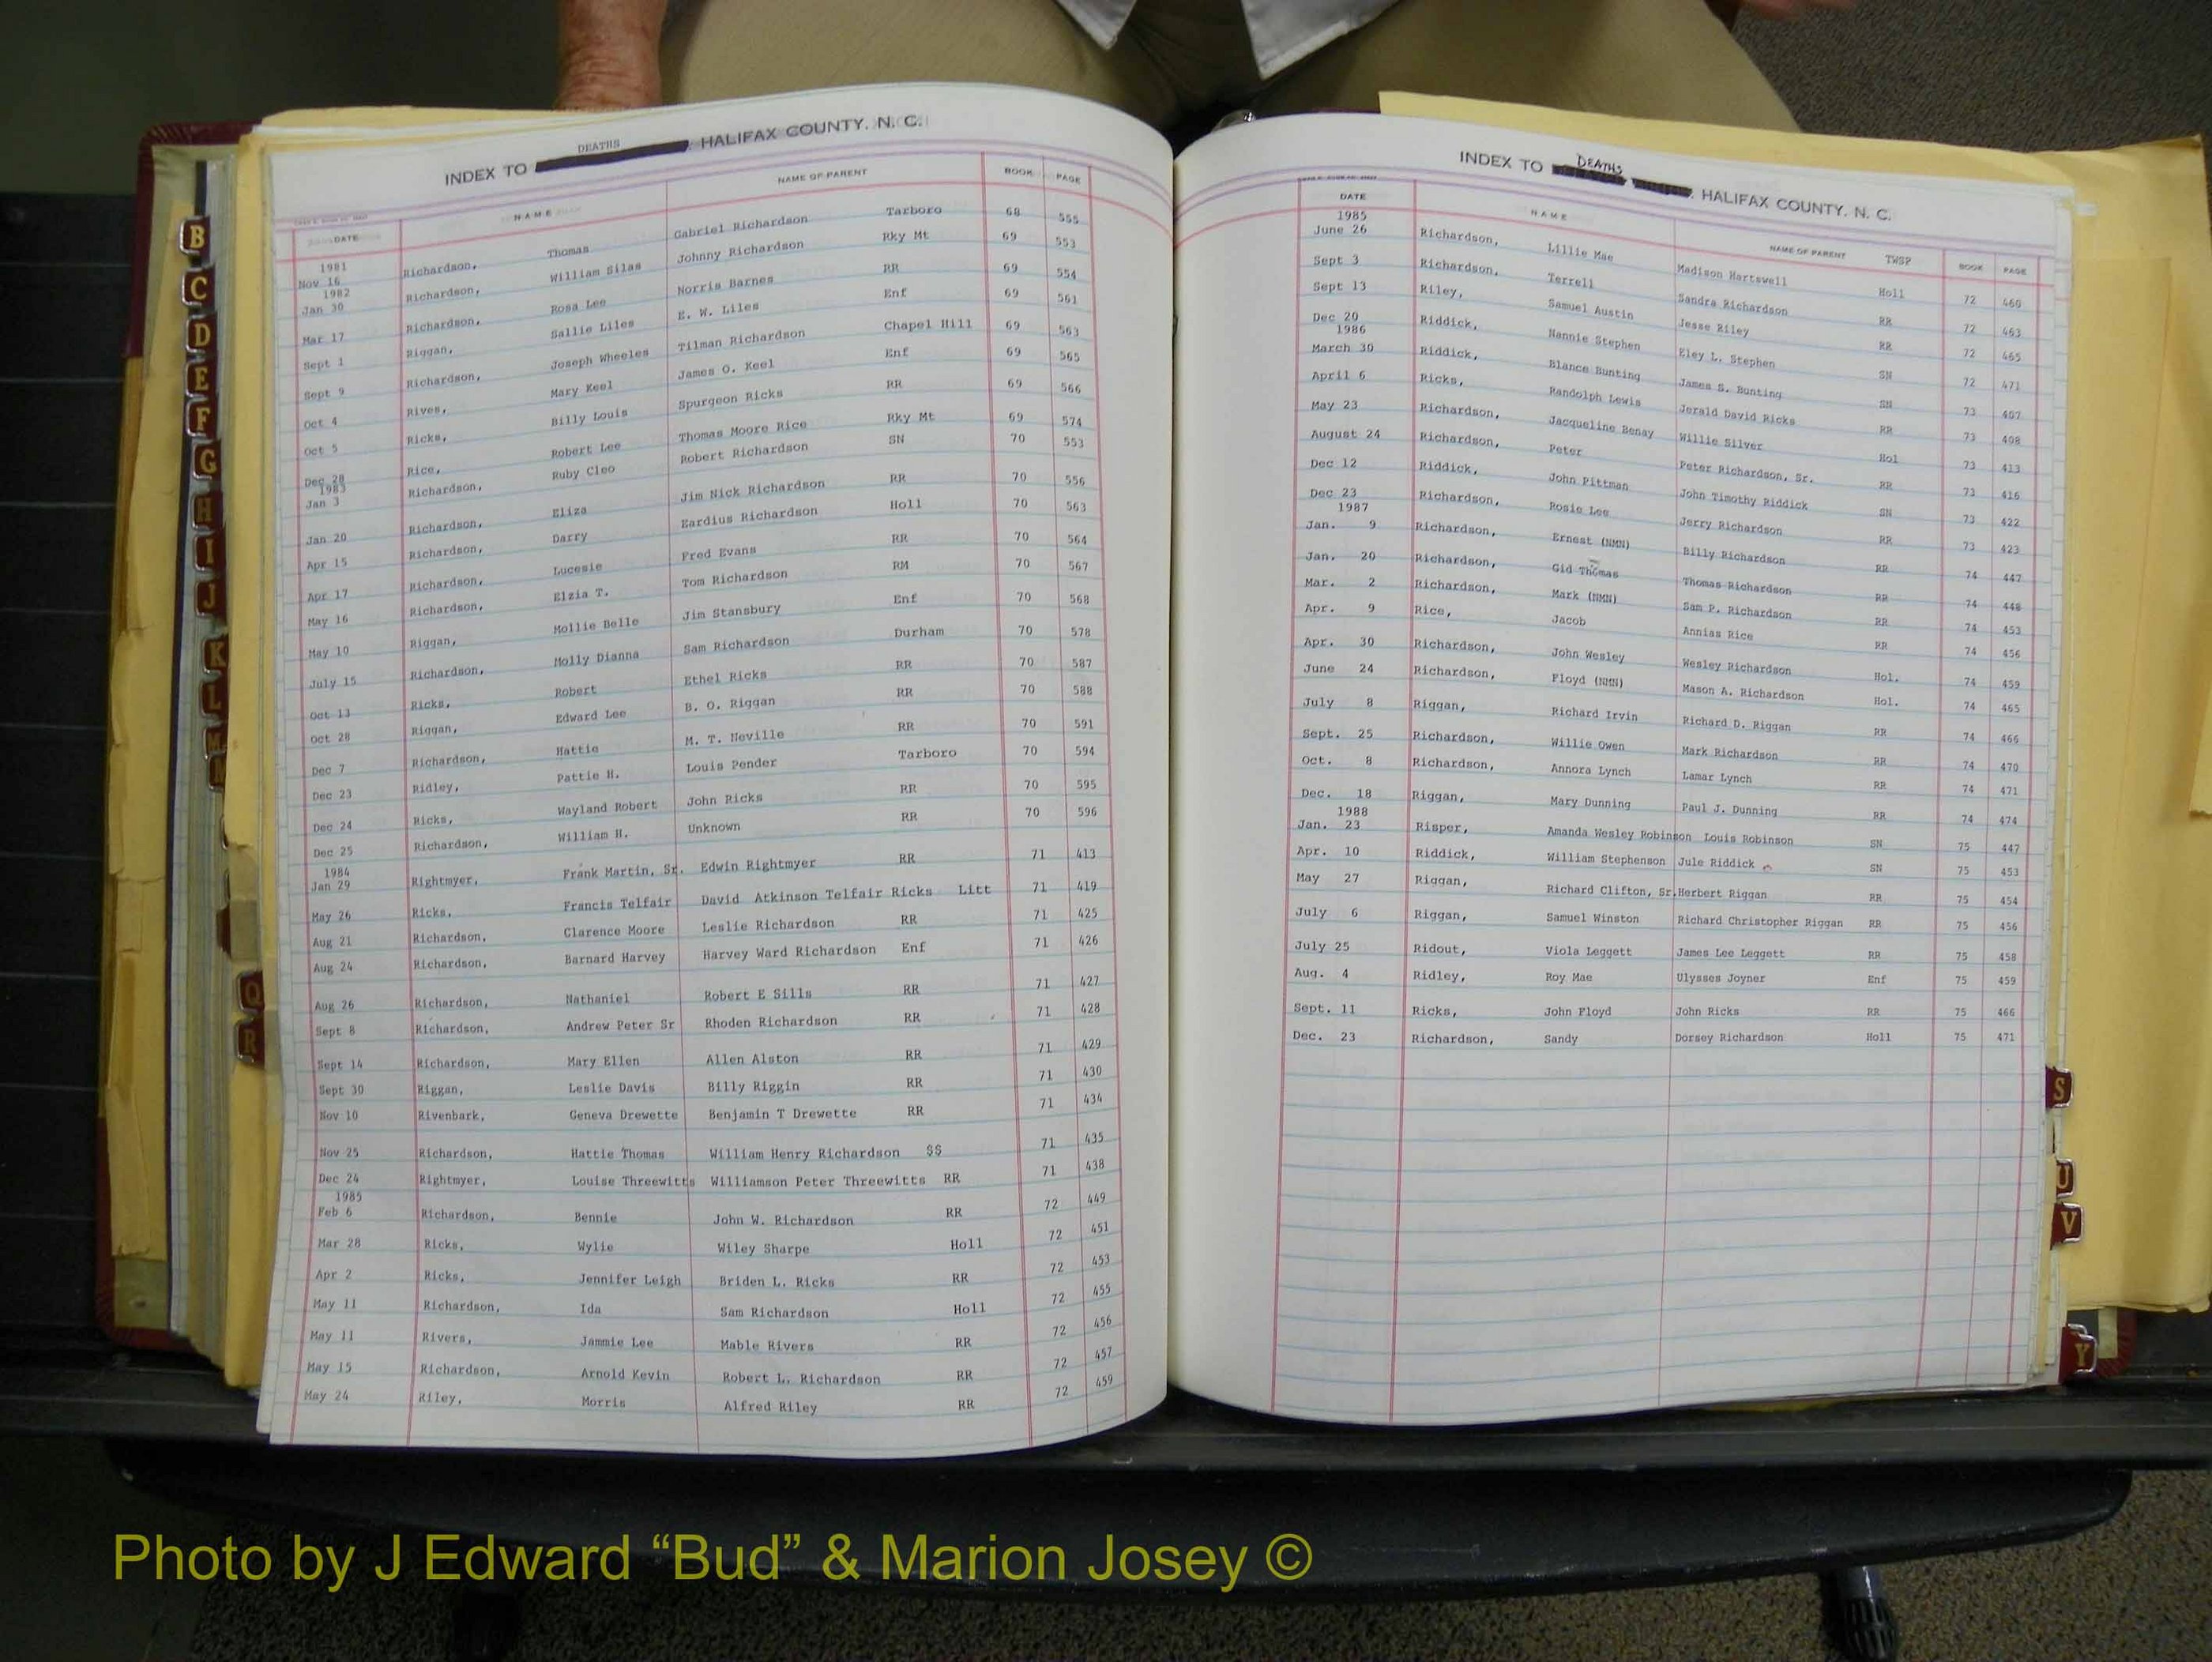 INDEX TO DEATHS HALIFAX COUNTY, N. C.
DATE NAME NAME OF PARENT BOOK PAGE
1981
Nov 16 Richardson, Thomas Gabriel Richardson Tarboro 68 555
1982
Jan 30 Richardson, William Silas Johnny Richardson Rky Mt 69 553
Mar 17 Richardson, Rosa Lee Norris Barnes RR 69 554
Sept 1 Riggan, Sallie Liles E. W. Liles Enf 69 561
Sept 9 Richardson, Joseph Wheeles Tilman Richardson Chapel Hill 69 563
Oct 4 Rives, Mary Keel James O. Keel Enf 69 565
Oct 5 Ricks, Billy Louis Spurgeon Ricks RR 69 566
Dec 28 Rice, Robert Lee Thomas Moore Rice Rky Mt 69 574
1983
Jan 3 Richardson, Ruby Cleo Robert Richardson SN 70 553
Jan 20 Richardson, Eliza Jim Nick Richardson RR 70 556
Apr 15 Richardson, Darry Eardius Richardson Holl 70 563
Apr 17 Richardson, Lucesie Fred Evans RR 70 564
May 16 Richardson, Elzia T. Tom Richardson RM 70 567
May 10 Riggan, Mollie Belle Jim Stansbury Enf 70 568
July 15 Richardson, Molly Dianna Sam Richardson Durham 70 578
Oct 13 Ricks, Robert Ethel Ricks RR 70 587
Oct 28 Riggan, Edward Lee B. O. Riggan RR 70 588
Dec 7 Richardson, Hattie M. T. Neville RR 70 591
Dec 23 Ridley, Pattie H. Louis Pender Tarboro 70 594
Dec 24 Ricks, Wayland Robert John Ricks RR 70 595
Dec 25 Richardson, William H. Unknown RR 70 596
1984
Jan 29 Rightmyer, Frank Martin, Sr. Edwin Rightmyer RR 71 413
May 26 Ricks, Francis Telfair David Atkinson Telfair Ricks Litt 71 419
Aug 21 Richardson, Clarence Moore Leslie Richardson RR 71 425
Aug 24 Richardson, Barnard Harvey Harvey Ward Richardson Enf 71 426
Aug 26 Richardson, Nathaniel Robert E Sills RR 71 427
Sept 8 Richardson, Andrew Peter Sr Rhoden Richardson RR 71 428
Sept 14 Richardson, Mary Ellen Allen Alston RR 71 429
Sept 30 Riggan, Leslie Davis Billy Riggin RR 71 430
Nov 10 Rivenbark, Geneva Drewette Benjamin T Drewette RR 71 434
Nov 25 Richardson, Hattie Thomas William Henry Richardson $$ 71 435
Dec 24 Rightmyer, Louise Threewitts Williamson Peter Threewitts RR 71 438
1985
Feb 6 Richardson, Bennie John W. Richardson RR 72 449
Mar 28 Ricks, Wylie Wiley Sharpe Holl 72 451
Apr 2 Ricks, Jennifer Leigh Briden L. Ricks RR 72 453
May 11 Richardson, Ida Sam Richardson Holl 72 455
May 11 Rivers, Jammie Lee Mable Rivers RR 72 456
May 15 Richardson, Arnold Kevin Robert L. Richardson RR 72 457
May 24 Riley, Morris Alfred Riley RR 72 459
INDEX TO DEATHS HALIFAX COUNTY, N. C.
DATE NAME NAME OF PARENT TWSP BOOK PAGE
1985
June 26 Richardson, Lillie Mae Madison Hartswell Holl 72 460
Sept 3 Richardson, Terrell Sandra Richardson RR 72 463
Sept 13 Riley, Samuel Austin Jesse Riley RR 72 465
Dec 20 Riddick, Nannie Stephen Eley L. Stephen SN 72 471
1986
March 30 Riddick, Blance Bunting James S. Bunting SN 73 407
April 6 Ricks, Randolph Lewis Jerald David Ricks RR 73 408
May 23 Richardson, Jacqueline Benay Willie Silver Hol 73 413
August 24 Richardson, Peter Peter Richardson, Sr. RR 73 416
Dec 12 Riddick, John Pittman John Timothy Riddick SN 73 422
Dec 23 Richardson, Rosie Lee Jerry Richardson RR 73 423
1987
Jan. 9 Richardson, Ernest (NMN) Billy Richardson RR 74 447
Jan. 20 Richardson, Gid Thomas Thomas Richardson RR 74 448
Mar. 2 Richardson, Mark (NMN) Sam P. Richardson RR 74 453
Apr. 9 Rice, Jacob Annias Rice RR 74 456
Apr. 30 Richardson, John Wesley Wesley Richardson Hol. 74 459
June 24 Richardson, Floyd (NMN) Mason A. Richardson Hol. 74 465
July 8 Riggan, Richard Irvin Richard D. Riggan RR 74 466
Sept. 25 Richardson, Willie Owen Mark Richardson RR 74 470
Oct. 8 Richardson, Annora Lynch Lamar Lynch RR 74 471
Dec. 18 Riggan, Mary Dunning Paul J. Dunning RR 74 474
1988
Jan. 23 Risper, Amanda Wesley Robinson Louis Robinson SN 75 447
Apr. 10 Riddick, William Stephenson Jule Riddick SN 75 453
May 27 Riggan, Richard Clifton, Sr. Herbert Riggan RR 75 454
July 6 Riggan, Samuel Winston Richard Christopher Riggan RR 75 456
July 25 Ridout, Viola Leggett James Lee Leggett RR 75 458
Aug. 4 Ridley, Roy Mae Ulysses Joyner Enf 75 459
Sept. 11 Ricks, John Floyd John Ricks RR 75 466
Dec. 23 Richardson, Sandy Dorsey Richardson Holl 75 471
B
C
D
E
F
G
H
I
J
K
L
M
N
Q
R
S
U
V
Y
Photo by J Edward “Bud” & Marion Josey ©